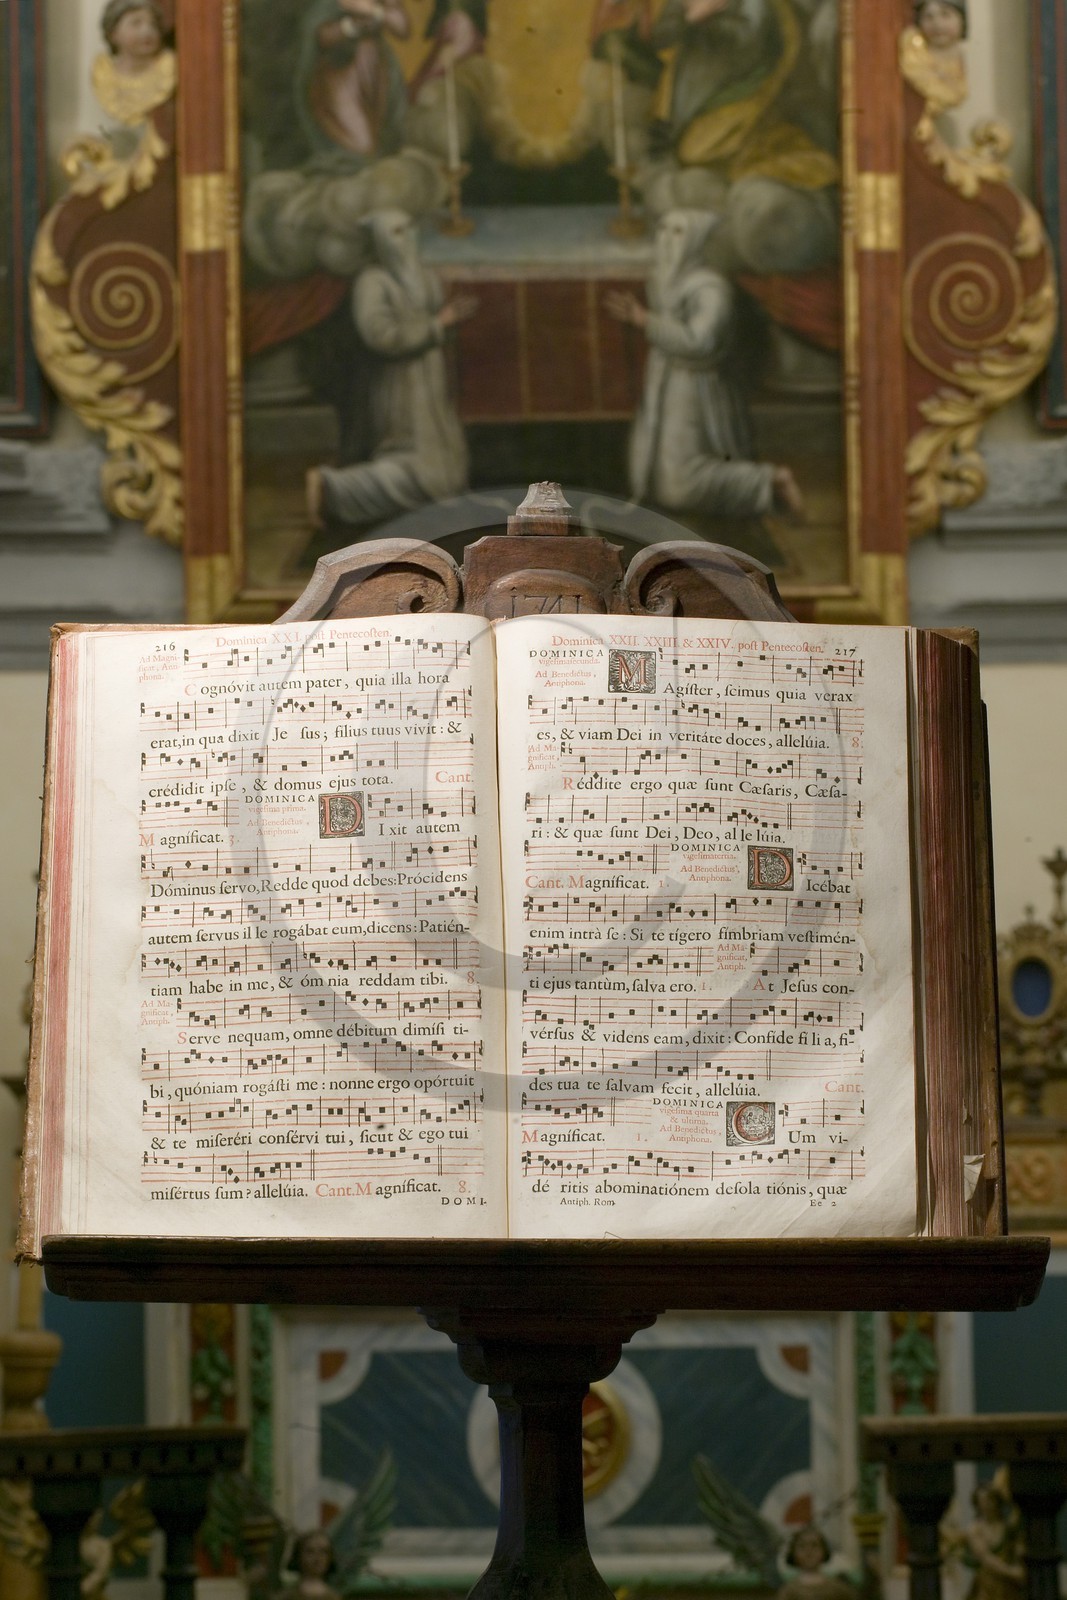 1741
216
Dominica XXI. poſt Pentecoſten.
Ad Magni-
ficat, Anti-
phona.
Cognóvit autem pater, quia illa hora
erat, in qua dixit Jeſus; filius tuus vivit: &
crédidit ipſe, & domus ejus tota. Cant.
Magníficat. 3.
DOMINICA
vigeſima prima.
Ad Benedictus,
Antiphona.
DIxit autem
Dóminus ſervo, Redde quod debes: Prócidens
autem ſervus ille rogábat eum, dicens: Patién-
tiam habe in me, & ómnia reddam tibi. 8.
Ad Ma-
gnificat,
Antiph.
Serve nequam, omne débitum dimíſi ti-
bi, quóniam rogáſti me: nonne ergo opórtuit
& te miſeréri conſérvi tui, ſicut & ego tui
miſértus ſum? allelúia. Cant. Magníficat. 8.
DOMI-
Dominica XXII. XXIII. & XXIV. poſt Pentecoſten.
217
DOMINICA
vigeſimaſecunda.
Ad Benedictus,
Antiphona.
MAgíſter, ſcimus quia verax
es, & viam Dei in veritáte doces, allelúia. 8.
Ad Ma-
gnificat,
Antiph.
Réddite ergo quæ ſunt Cæſaris, Cæſa-
ri: & quæ ſunt Dei, Deo, allelúia.
Cant. Magníficat. 1.
DOMINICA
vigeſimatertia.
Ad Benedictus,
Antiphona.
DIcébat
enim intrà ſe: Si tetígero fímbriam veſtimén-
ti ejus tantùm, ſalva ero. 1.
Ad Ma-
gnificat,
Antiph.
At Jeſus con-
vérſus & videns eam, dixit: Confide fília, fi-
des tua te ſalvam fecit, allelúia. Cant.
Magníficat. 1.
DOMINICA
vigeſima quarta
& ultima.
Ad Benedictus,
Antiphona.
CUm vi-
déritis abominatiónem deſolatiónis, quæ
Antiph. Rom.
Ee 2